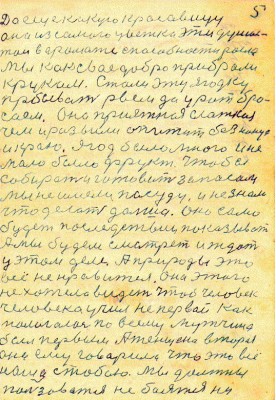 5
До еще какую красавицу
она из самого цветка эти души
той в аромате способности рода
Мы как свое добро прибрали
к рукам. Стали эту ягодку
прбыват рвем да у рот бро
саем. Она приятная сладкая
чем и развили аппитит без конца
и краю. Ягод было много и не
мало было фрукт. Чтобы
собират и готовит запасом
мы не имели посуду, и не знали
что делат дальше. Оно само
будет последствии показыват
А мы будем смотрет и ждат
у этом деле. А природы это
всё не нравится. Она этого
не хотела видет чтоб человек
человека учил не первой. Как
полагалос по всему мужчина
был первым А женщина вторая
она ему говорила что это всё
наше с тобою. Мы должны
ползоватся не боятся ни